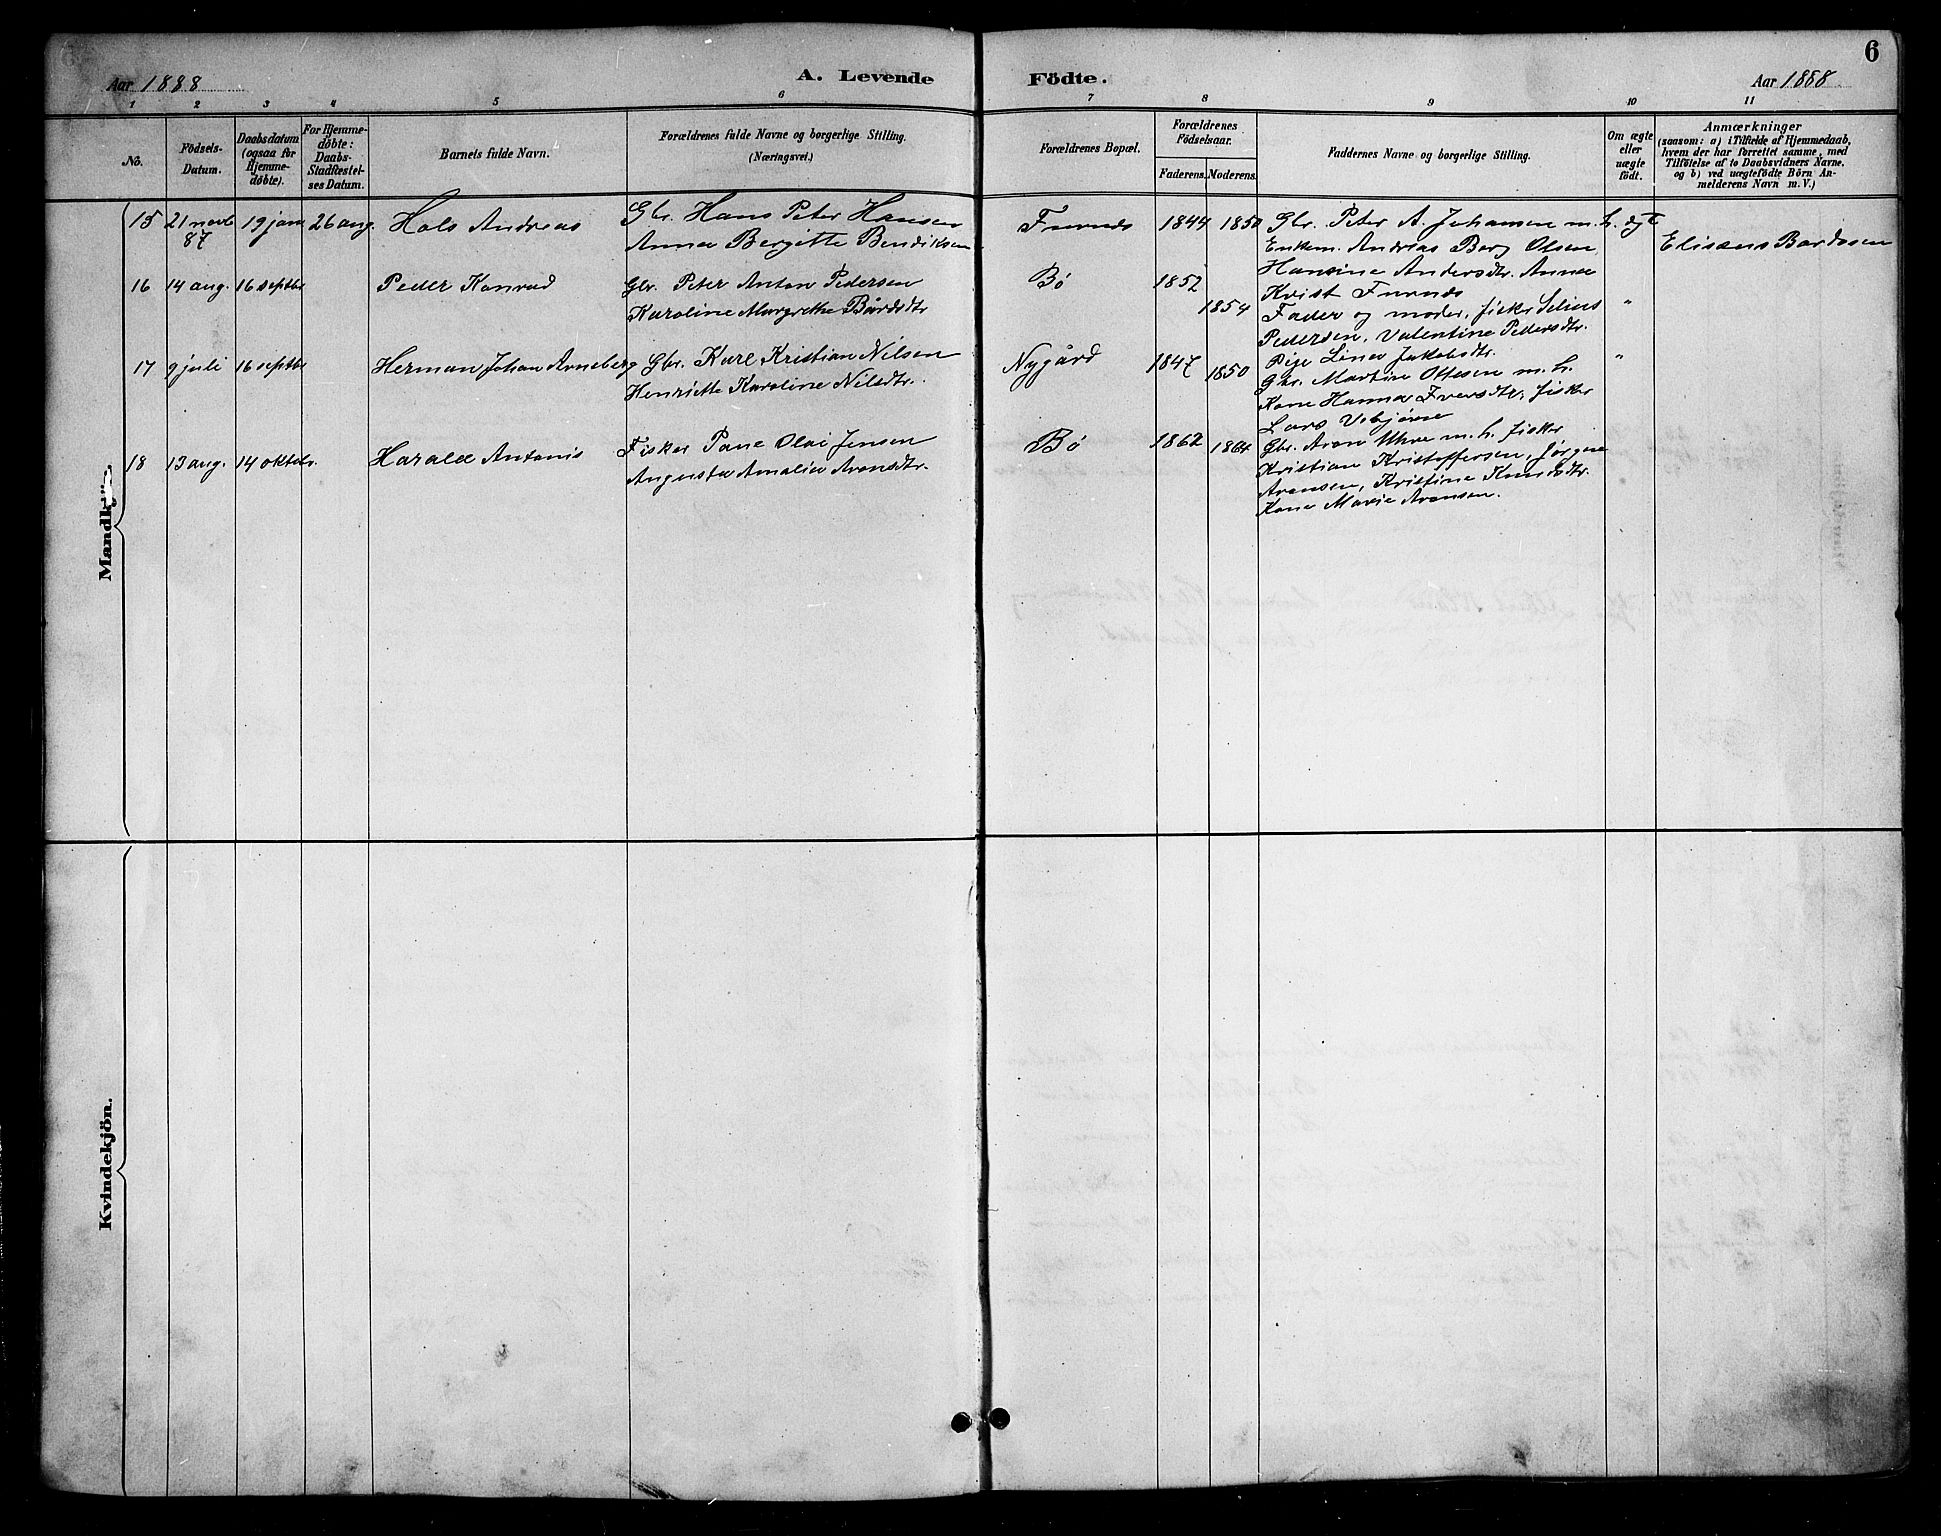 6
Aar 1888 A. Levende Födte. Aar 1888
1 2 3 4 5 6 7 8 9 10 11
No.
Födsels-
Datum.
Daabsdatum
(ogsaa for
Hjemme-
döbte).
For Hjemme-
döbte:
Daabs-
Stadfæstel-
ses Datum.
Barnets fulde Navn.
Forældrenes fulde Navne og borgerlige Stilling.
(Næringsvei.)
Forældrenes Bopæl.
Forældrenes
Födselsaar.
Faderens. Moderens.
Faddernes Navne og borgerlige Stilling.
Om ægte
eller
uægte
födt.
Anmærkninger
(saasom: a) i Tilfælde af Hjemmedaab,
hvem der har forrettet samme, med
Tilföielse af to Daabsvidners Navne,
og b) ved uægtefödte Börn An-
melderens Navn m. V.)
Mandkjön.
15 21 novb 87 19 jan 26 aug. Hals Andreas
Gbr. Hans Peter Hansen
Anna Bergitte Bendiksen
Furnds 1844 1850
Gbr. Peter A. Johansen m. h.
Enkem. Andreas Berg Olsen
Hansine Andersdtr. Anna
Krist Furnds
ægt
Elisæus Bardosen
16 14 aug. 16 septbr Peder Konrad
Gbr. Peter Anton Pedersen
Karoline Margrethe Bårdsdtr
Bø 1852 1854
Fader og moder, fisker Selius
Pedersen, Valentine Pedersdtr.
Pige Lina Jakobsdtr.
"
17 9 juli 16 septbr Herman Johan Arneberg
Gbr. Karl Kristian Nilsen
Henriette Karoline Nilsdtr.
Nygård 1847 1850
Gbr. Martin Ottesen m. h.
Kone Hanna Iversdtr, fisker
Lars Vebjörn
"
18 13 aug. 14 oktobr. Harald Antonis
Fisker Pane Olai Jensen
Augusta Amalia Aronsdtr.
Bø 1862 1864
Gbr. Aron Uhre m. h. fisker
Kristian Kristoffersen, Jørgine
Aronsen, Kristine Knudsdtr.
Kone Marie Aronsen.
Kvindekjön.